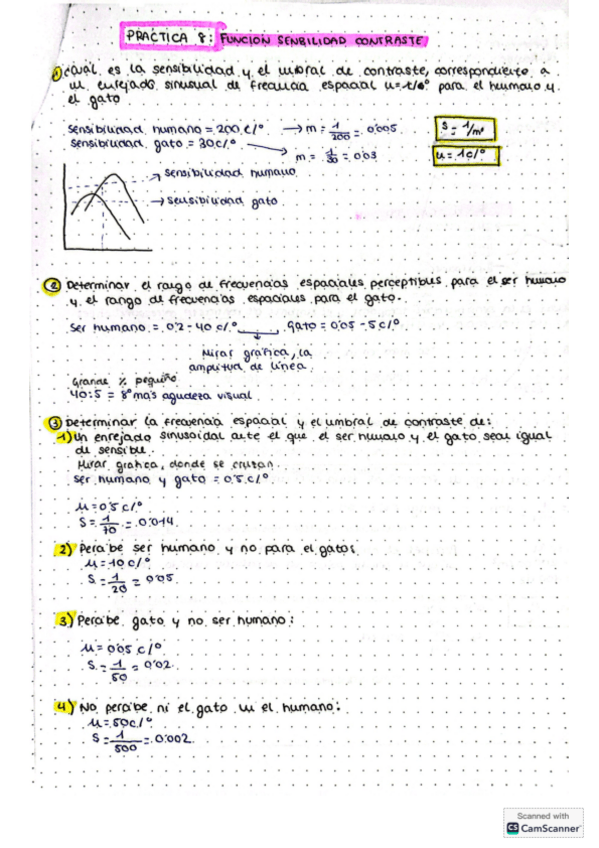 PRACTICA 8: FUNCION SENBILIDAD CONTRASTE
1) ¿Cuál es la sensibilidad y el umbral de contraste, correspondiente a
un enrejado sinusual de frecuencia espacial u=1c/° para el humano y
el gato
sensibilidad humano = 200 c/° → m = 1/200 = 0'005
S = 1/m
sensibilidad gato = 30c/° → m = 1/30 = 0'03
u = 1c/°
→ sensibilidad humano
→ sensibilidad gato
2) Determinar el rango de frecuencias espaciales perceptibles para el ser humano
y el rango de frecuencias espaciales para el gato.
ser humano = 0'2 - 40 c/°, gato = 0'05 - 5c/°
Mirar gráfica, la
amplitud de línea.
Grande % pequeño
40:5 = 8° más agudeza visual
3) Determinar la frecuencia espacial y el umbral de contraste de:
1) Un enrejado sinusoidal ante el que el ser humano y el gato sean igual
de sensible.
Mirar grafica, donde se cruzan.
ser humano y gato = 0'5 c/°
u = 0'5 c/°
S = 1/70 = 0'014
2) Percibe ser humano y no para el gato:
u = 10 c/°
S = 1/20 = 0'05
3) Percibe gato y no ser humano:
u = 0'05 c/°
S = 1/50 = 0'02
4) No percibe ni el gato ni el humano:
u = 50c/°
S = 1/500 = 0'002
Scanned with
CS CamScanner